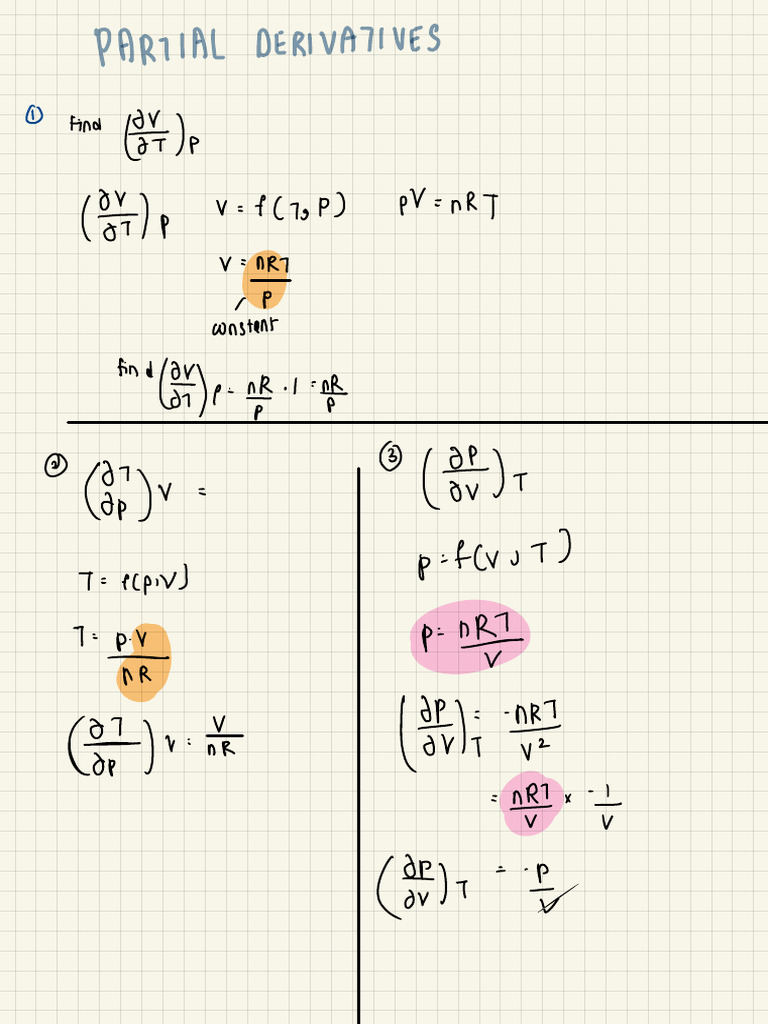 PARTIAL DERIVATIVES
① find (∂V/∂T)P
(∂V/∂T)P V = f(T, P) PV = nRT
V = nRT/P
constant
find (∂V/∂T)P = nR/P · 1 = nR/P
② (∂T/∂P)V =
T = f(P,V)
T = P·V/nR
(∂T/∂P)V = V/nR
③ (∂P/∂V)T
P = f(V, T)
P = nRT/V
(∂P/∂V)T = -nRT/V²
= nRT/V × -1/V
(∂P/∂V)T = -P/V